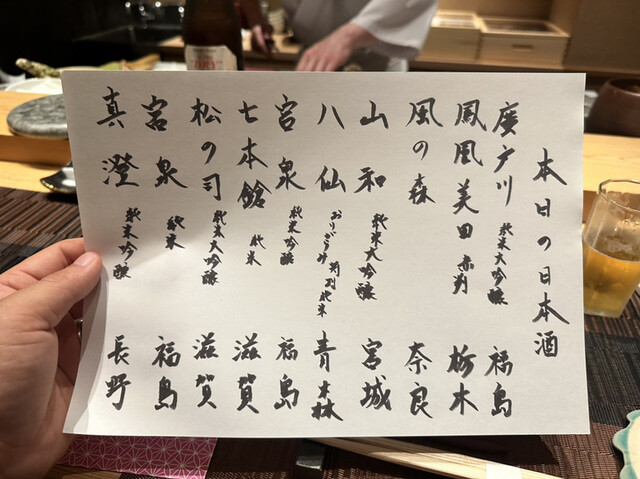 本日の日本酒
廣戸川 純米大吟醸 福島
鳳凰美田 赤判 栃木
風の森 奈良
山和 純米大吟醸 宮城
八仙 おりがらみ 特別純米 青森
宮泉 純米吟醸 福島
七本鎗 純米 滋賀
松の司 純米大吟醸 滋賀
宮泉 純米 福島
真澄 純米吟醸 長野